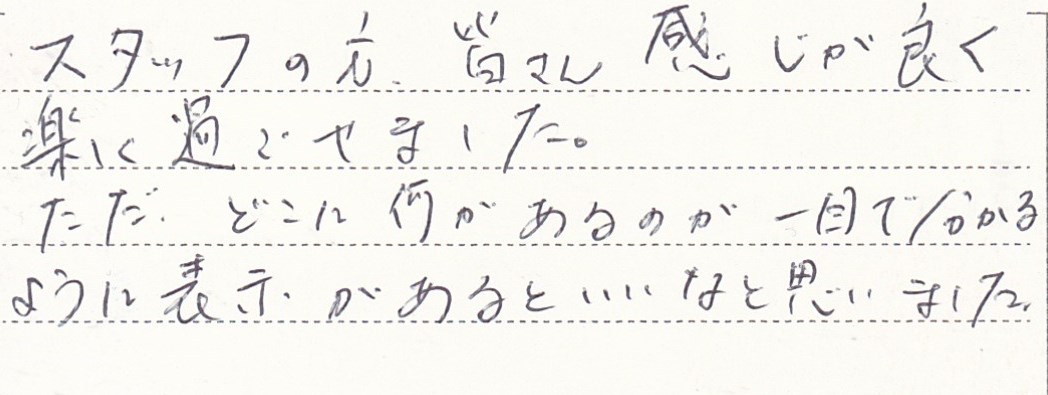 スタッフの方、皆さん 感じが良く
楽に過ごせました。
ただ、どこに何があるのが一目で分かる
ように表示があるといいなと思いました。